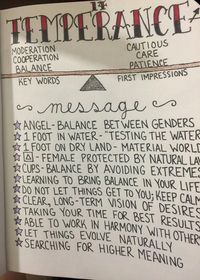 14
TEMPERANCE
MODERATION
COOPERATION
BALANCE
CAUTIOUS
CARE
PATIENCE
KEY WORDS
FIRST IMPRESSIONS
message
ANGEL - BALANCE BETWEEN GENDERS
1 FOOT IN WATER - TESTING THE WATER
1 FOOT ON DRY LAND - MATERIAL WORLD
- FEMALE PROTECTED BY NATURAL LAW
CUPS - BALANCE BY AVOIDING EXTREMES
LEARNING TO BRING BALANCE IN YOUR LIFE
DO NOT LET THINGS GET TO YOU; KEEP CALM
CLEAR, LONG-TERM VISION OF DESIRES
TAKING YOUR TIME FOR BEST RESULTS
ABLE TO WORK IN HARMONY WITH OTHERS
LET THINGS EVOLVE NATURALLY
SEARCHING FOR HIGHER MEANING